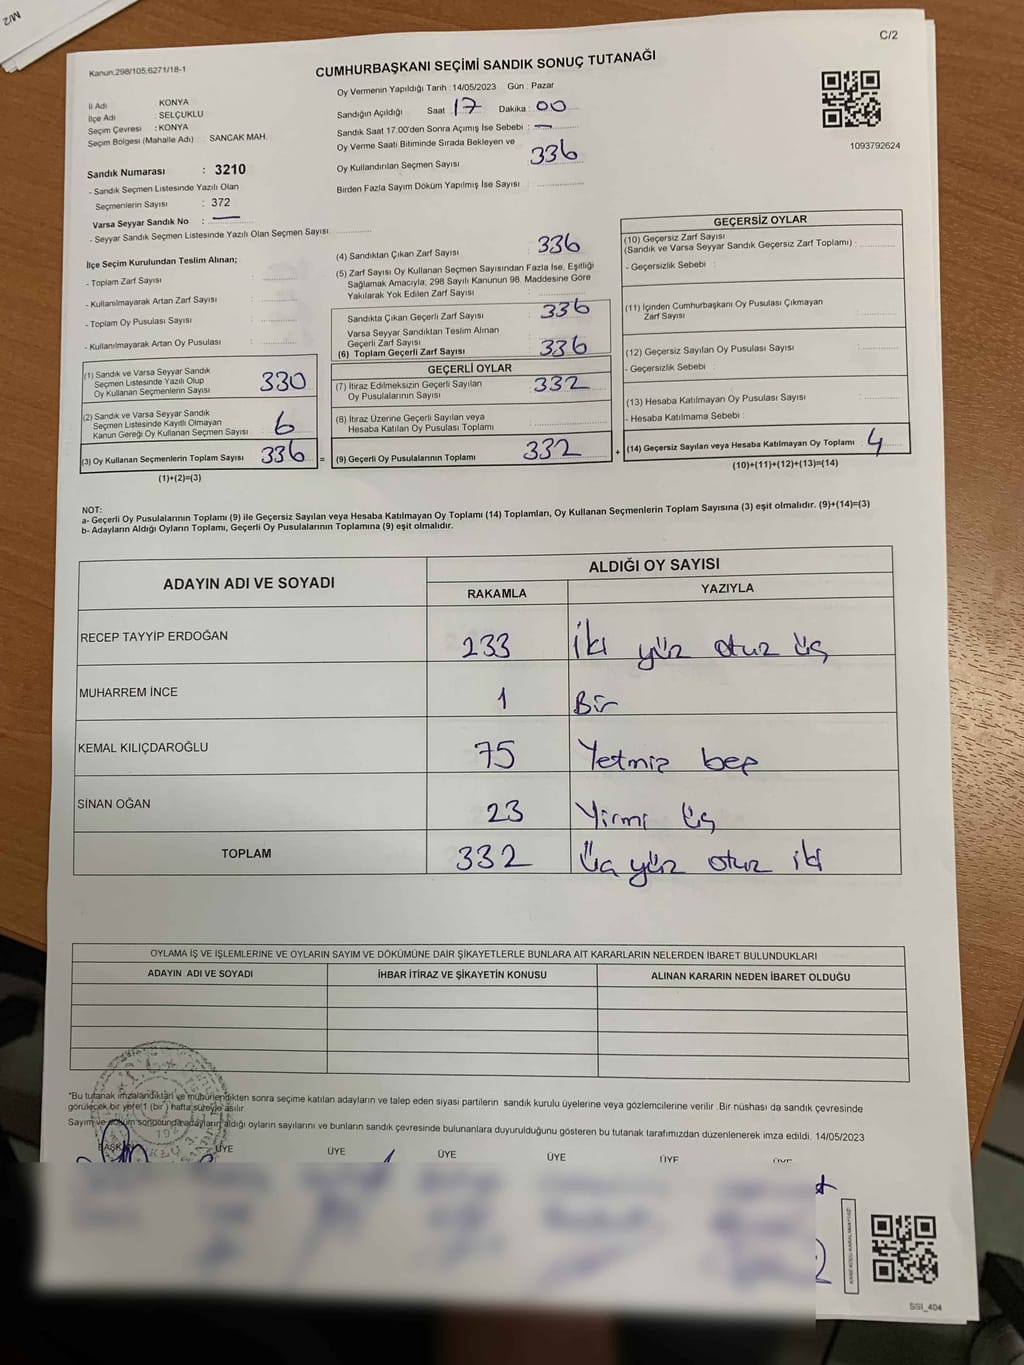 M/2
C/2
Kanun,298/105,6271/18-1
CUMHURBAŞKANI SEÇİMİ SANDIK SONUÇ TUTANAĞI
İl Adı : KONYA
İlçe Adı : SELÇUKLU
Seçim Çevresi : KONYA
Seçim Bölgesi (Mahalle Adı) SANCAK MAH.
Oy Vermenin Yapıldığı Tarih : 14/05/2023 Gün : Pazar
Sandığın Açıldığı Saat : 17 Dakika : 00
Sandık Saat 17:00'den Sonra Açımış İse Sebebi : —
Oy Verme Saati Bitiminde Sırada Bekleyen ve
Oy Kullandırılan Seçmen Sayısı 336
Birden Fazla Sayım Döküm Yapılmış İse Sayısı :
1093792624
Sandık Numarası : 3210
- Sandık Seçmen Listesinde Yazılı Olan
Seçmenlerin Sayısı : 372
Varsa Seyyar Sandık No : —
- Seyyar Sandık Seçmen Listesinde Yazılı Olan Seçmen Sayısı
İlçe Seçim Kurulundan Teslim Alınan;
- Toplam Zarf Sayısı :
- Kullanılmayarak Artan Zarf Sayısı :
- Toplam Oy Pusulası Sayısı :
- Kullanılmayarak Artan Oy Pusulası :
(1) Sandık ve Varsa Seyyar Sandık
Seçmen Listesinde Yazılı Olup
Oy Kullanan Seçmenlerin Sayısı 330
(2) Sandık ve Varsa Seyyar Sandık
Seçmen Listesinde Kayıtlı Olmayan
Kanun Gereği Oy Kullanan Seçmen Sayısı 6
(3) Oy Kullanan Seçmenlerin Toplam Sayısı 336 =
(1)+(2)=(3)
(4) Sandıktan Çıkan Zarf Sayısı : 336
(5) Zarf Sayısı Oy Kullanan Seçmen Sayısından Fazla İse, Eşitliği
Sağlamak Amacıyla, 298 Sayılı Kanunun 98. Maddesine Göre
Yakılarak Yok Edilen Zarf Sayısı :
Sandıkta Çıkan Geçerli Zarf Sayısı : 336
Varsa Seyyar Sandıktan Teslim Alınan
Geçerli Zarf Sayısı :
(6) Toplam Geçerli Zarf Sayısı : 336
GEÇERLİ OYLAR
(7) İtiraz Edilmeksizin Geçerli Sayılan
Oy Pusulalarının Sayısı : 332
(8) İtiraz Üzerine Geçerli Sayılan veya
Hesaba Katılan Oy Pusulası Toplamı :
(9) Geçerli Oy Pusulalarının Toplamı 332 +
GEÇERSİZ OYLAR
(10) Geçersiz Zarf Sayısı
(Sandık ve Varsa Seyyar Sandık Geçersiz Zarf Toplamı) :
- Geçersizlik Sebebi :
(11) İçinden Cumhurbaşkanı Oy Pusulası Çıkmayan
Zarf Sayısı :
(12) Geçersiz Sayılan Oy Pusulası Sayısı :
- Geçersizlik Sebebi :
(13) Hesaba Katılmayan Oy Pusulası Sayısı :
- Hesaba Katılmama Sebebi :
(14) Geçersiz Sayılan veya Hesaba Katılmayan Oy Toplamı : 4
(10)+(11)+(12)+(13)=(14)
NOT:
a- Geçerli Oy Pusulalarının Toplamı (9) ile Geçersiz Sayılan veya Hesaba Katılmayan Oy Toplamı (14) Toplamları, Oy Kullanan Seçmenlerin Toplam Sayısına (3) eşit olmalıdır. (9)+(14)=(3)
b- Adayların Aldığı Oyların Toplamı, Geçerli Oy Pusulalarının Toplamına (9) eşit olmalıdır.
ADAYIN ADI VE SOYADI ALDIĞI OY SAYISI
RAKAMLA YAZIYLA
RECEP TAYYİP ERDOĞAN 233 İki yüz otuz üç
MUHARREM İNCE 1 Bir
KEMAL KILIÇDAROĞLU 75 Yetmiş beş
SİNAN OĞAN 23 Yirmi üç
TOPLAM 332 Üç yüz otuz iki
OYLAMA İŞ VE İŞLEMLERİNE VE OYLARIN SAYIM VE DÖKÜMÜNE DAİR ŞİKAYETLERLE BUNLARA AİT KARARLARIN NELERDEN İBARET BULUNDUKLARI
ADAYIN ADI VE SOYADI İHBAR İTİRAZ VE ŞİKAYETİN KONUSU ALINAN KARARIN NEDEN İBARET OLDUĞU
*Bu tutanak imzalandıktan ve mühürlendikten sonra seçime katılan adayların ve talep eden siyasi partilerin sandık kurulu üyelerine veya gözlemcilerine verilir .Bir nüshası da sandık çevresinde
görülecek bir yere 1 (bir ) hafta süreyle asılır.
Sayım ve döküm sonucunda adayların aldığı oyların sayılarını ve bunların sandık çevresinde bulunanlara duyurulduğunu gösteren bu tutanak tarafımızdan düzenlenerek imza edildi. 14/05/2023
BAŞKAN ÜYE ÜYE ÜYE ÜYE ÜYE ÜYE
SSI_404